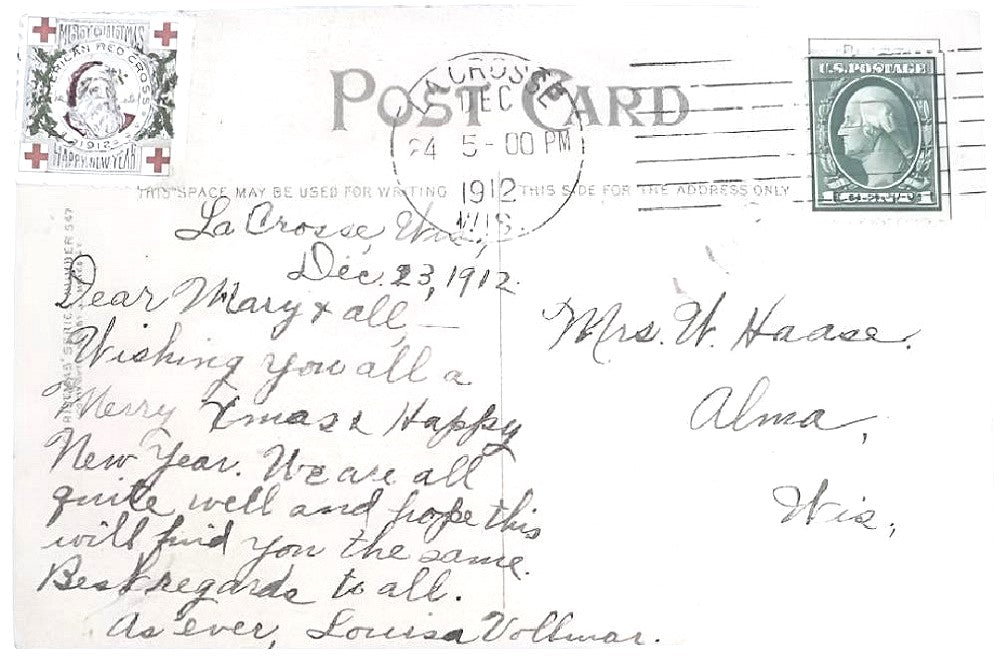 MERRY CHRISTMAS
AMERICAN RED CROSS
1912
HAPPY NEW YEAR
POST CARD
LA CROSSE
DEC
24 5-00 PM
1912
WIS.
U.S. POSTAGE
THIS SPACE MAY BE USED FOR WRITING
THIS SIDE FOR THE ADDRESS ONLY
La Crosse, Wis.,
Dec. 23, 1912.
Dear Mary & all, —
Wishing you all a
Merry Xmas & Happy
New Year. We are all
quite well and hope this
will find you the same.
Best regards to all.
As ever, Louisa Vollmar.
Mrs. W. Haase.
Alma,
Wis,